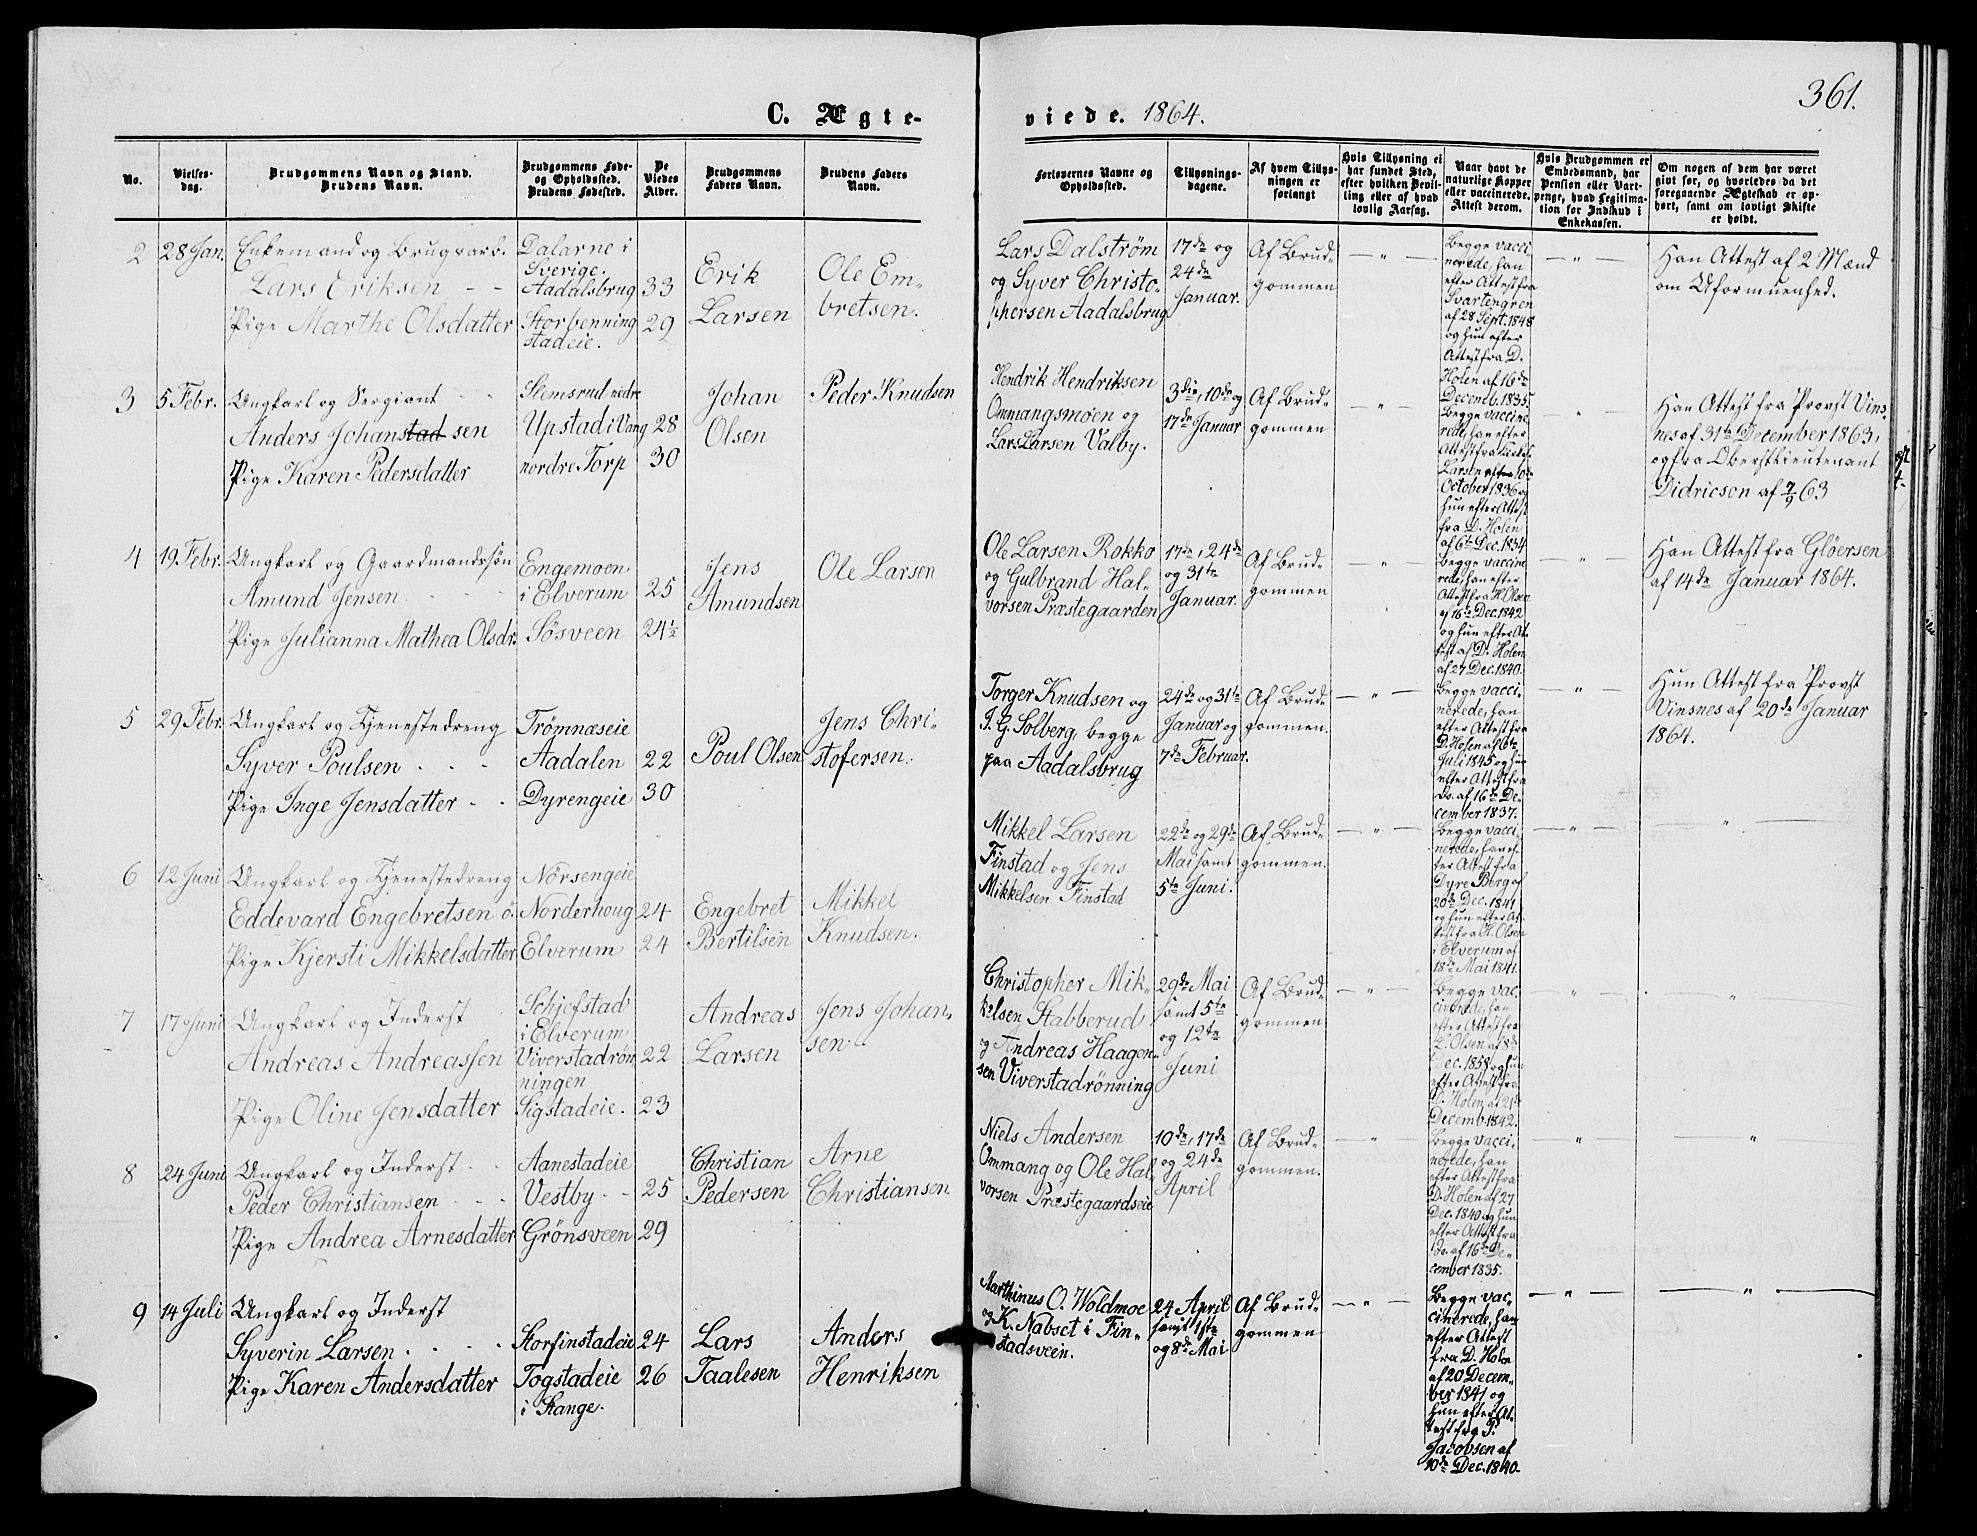 361.
C. Ægte-
viede. 1864.
No.
Vielses-
dag.
Brudgommens Navn og Stand.
Brudens Navn.
Brudgommens Føde-
og Opholdssted.
Brudens Fødested.
De
Viedes
Alder.
Brudgommens
Faders Navn.
Brudens Faders
Navn.
Forlovernes Navne og
Opholdssted.
Tillysnings-
dagene.
Af hvem Tillys-
ningen er
forlangt
Hvis Tillysning ei
har fundet Sted,
efter hvilken Bevil-
ling eller af hvad
lovlig Aarsag.
Naar havt de
naturlige Kopper
eller vaccinerede.
Attest derom.
Hvis Brudgommen er
Embedsmand, har
Pension eller Vart-
penge, hvad Legitima-
tion for Indskud i
Enkekassen.
Om nogen af dem har været
givt før, og hvorledes da det
foregaaende Ægteskab er op-
hørt, samt om lovligt Skifte
er holdt.
2
28 Jan.
Enkemand og Brugsarb.
Lars Eriksen - -
Pige Marthe Olsdatter
Dalarne i
Sverige.
Aadalsbrug
Storbenning
stadeie.
33
29
Erik
Larsen
Ole Em-
bretsen.
Lars Dalstrøm
og Syver Christo-
phersen Aadalsbrug
17de og
24de
Januar.
Af Brud-
gommen
Begge vacci-
nerede, han
efter Attest fra
Svartengren
af 28 Sept. 1848
og hun efter
Attest fra D.
Holen af 16de
Decemb. 1835
Han Attest af 2 Mænd
om Uformuenhed.
3
5 Febr.
Ungkarl og Sergiant - -
Anders Johanstad sen
Pige Karen Pedersdatter
Slemsrud nedre
Upstad i Vang
nordre Torp
28
30
Johan
Olsen
Peder Knudsen
Hendrik Hendriksen
Ommangsmoen og
Lars Larsen Valby.
3die, 10de og
17de Januar
Af Brud-
gommen
Begge vaccine
rede, han efter
Attest fra Kirkes.
Larsen efter 10de
October 1836 og
hun efter Attest
fra D. Holen
af 6te Dec. 1834
Han Attest fra Provst Vins-
nes af 31te December 1863,
og fra Oberstlieutenant
Didricson af 7/9 63
4
19 Febr.
Ungkarl og Gaardmandssøn
Amund Jensen. - - -
Pige Julianna Mathea Olsdr.
Engemoen
i Elverum
Søsveen
25
24½
Jens
Amundsen
Ole Larsen
Ole Larsen Rokko
og Gulbrand Hal-
vorsen Præstegaarden
17de, 24de
og 31te
Januar.
Af Brud-
gommen
Begge vaccine
rede, han efter
Attest fra K. Olsen
af 16de Dec. 1842
og hun efter At-
test af D. Holen
af 27 Dec. 1840.
Han Attest fra Gløersen
af 14de Januar 1864.
5
29 Febr.
Ungkarl og Tjenestedreng
Syver Poulsen . . .
Pige Inge Jensdatter - -
Trømnæseie
Aadalen
Dyrengeie
22
30
Poul Olsen
Jens Chri-
stofersen.
Torger Knudsen og
I. G. Solberg, begge
paa Aadalsbrug
24de og 31te
Januar og
7de Februar.
Af Brud-
gommen.
Begge vacci-
nerede, han
efter Attest fra
D. Holen af 6te
Juli 1845 og hun
efter Attest fra
Ds. af 16de De-
cember 1837.
Hun Attest fra Provst
Vinsnes af 20de Januar
1864.
6
12 Juni
Ungkarl og Tjenestedreng
Eddevard Engebretsen ö.
Pige Kjersti Mikkelsdatter
Nørsengeie
Norderhoug
Elverum
24
24
Engebret
Bertilsen
Mikkel
Knudsen.
Mikkel Larsen
Finstad og Jens
Mikkelsen Finstad
22de og 29de
Mai samt
5te Juni.
Af Brud-
gommen.
Begge vacci-
nerede, han ef-
ter Attest fra
Dyre Berg af
20de Dec. 1841
og hun efter At-
test fra K. Olsen
i Elverum af
18de Mai 1841.
7
17 Juni
Ungkarl og Inderst
Andreas Andreassen
Pige Oline Jensdatter
Schjefstad
i Elverum
Viverstadrøn-
ningen
Sigstadeie.
22
23
Andreas
Larsen
Jens Johan-
sen.
Christopher Mik-
kelsen Stabberud
og Andreas Haagen-
sen Viverstadrønning
29de Mai
samt 5te
og 12te
Juni
Af Brud-
gommen
Begge vac-
cinerede, han
efter Attest fra
K. Olsen af 8de
Dec. 1858 og hun
efter Attest fra
D. Holen af 21de
Decemb. 1842.
8
24 Juni
Ungkarl og Inderst - -
Peder Christiansen - - -
Pige Andrea Arnesdatter
Aanestadeie
Vestby - -
Grønsveen
25
29
Christian
Pedersen
Arne
Christiansen
Niels Andersen
Ommang og Ole Hal-
vorsen Præstegaardseie
10de, 17de
og 24de
April
Af Brud-
gommen.
Begge vacci-
nerede, han
efter Attest fra
D. Holen af 27
Dec. 1840 og hun
efter Attest fra
ds. af 16de De-
cember 1835.
9
14 Juli
Ungkarl og Inderst
Syverin Larsen . . . .
Pige Karen Andersdatter
Storfinstadeie
Togstadeie
i Stange.
24
26
Lars
Taalesen
Anders
Henriksen
Marthinus O. Woldmoe
og K. Nabset i Fin-
stadsveen.
24 April
samt 1ste
og 8de Mai
Af Brud-
gommen
Begge vac-
cinerede, han
efter Attest
fra D. Holen
af 20 Decem-
ber 1841 og
hun efter At-
test fra P.
Jacobsen af
10de Dec. 1840.